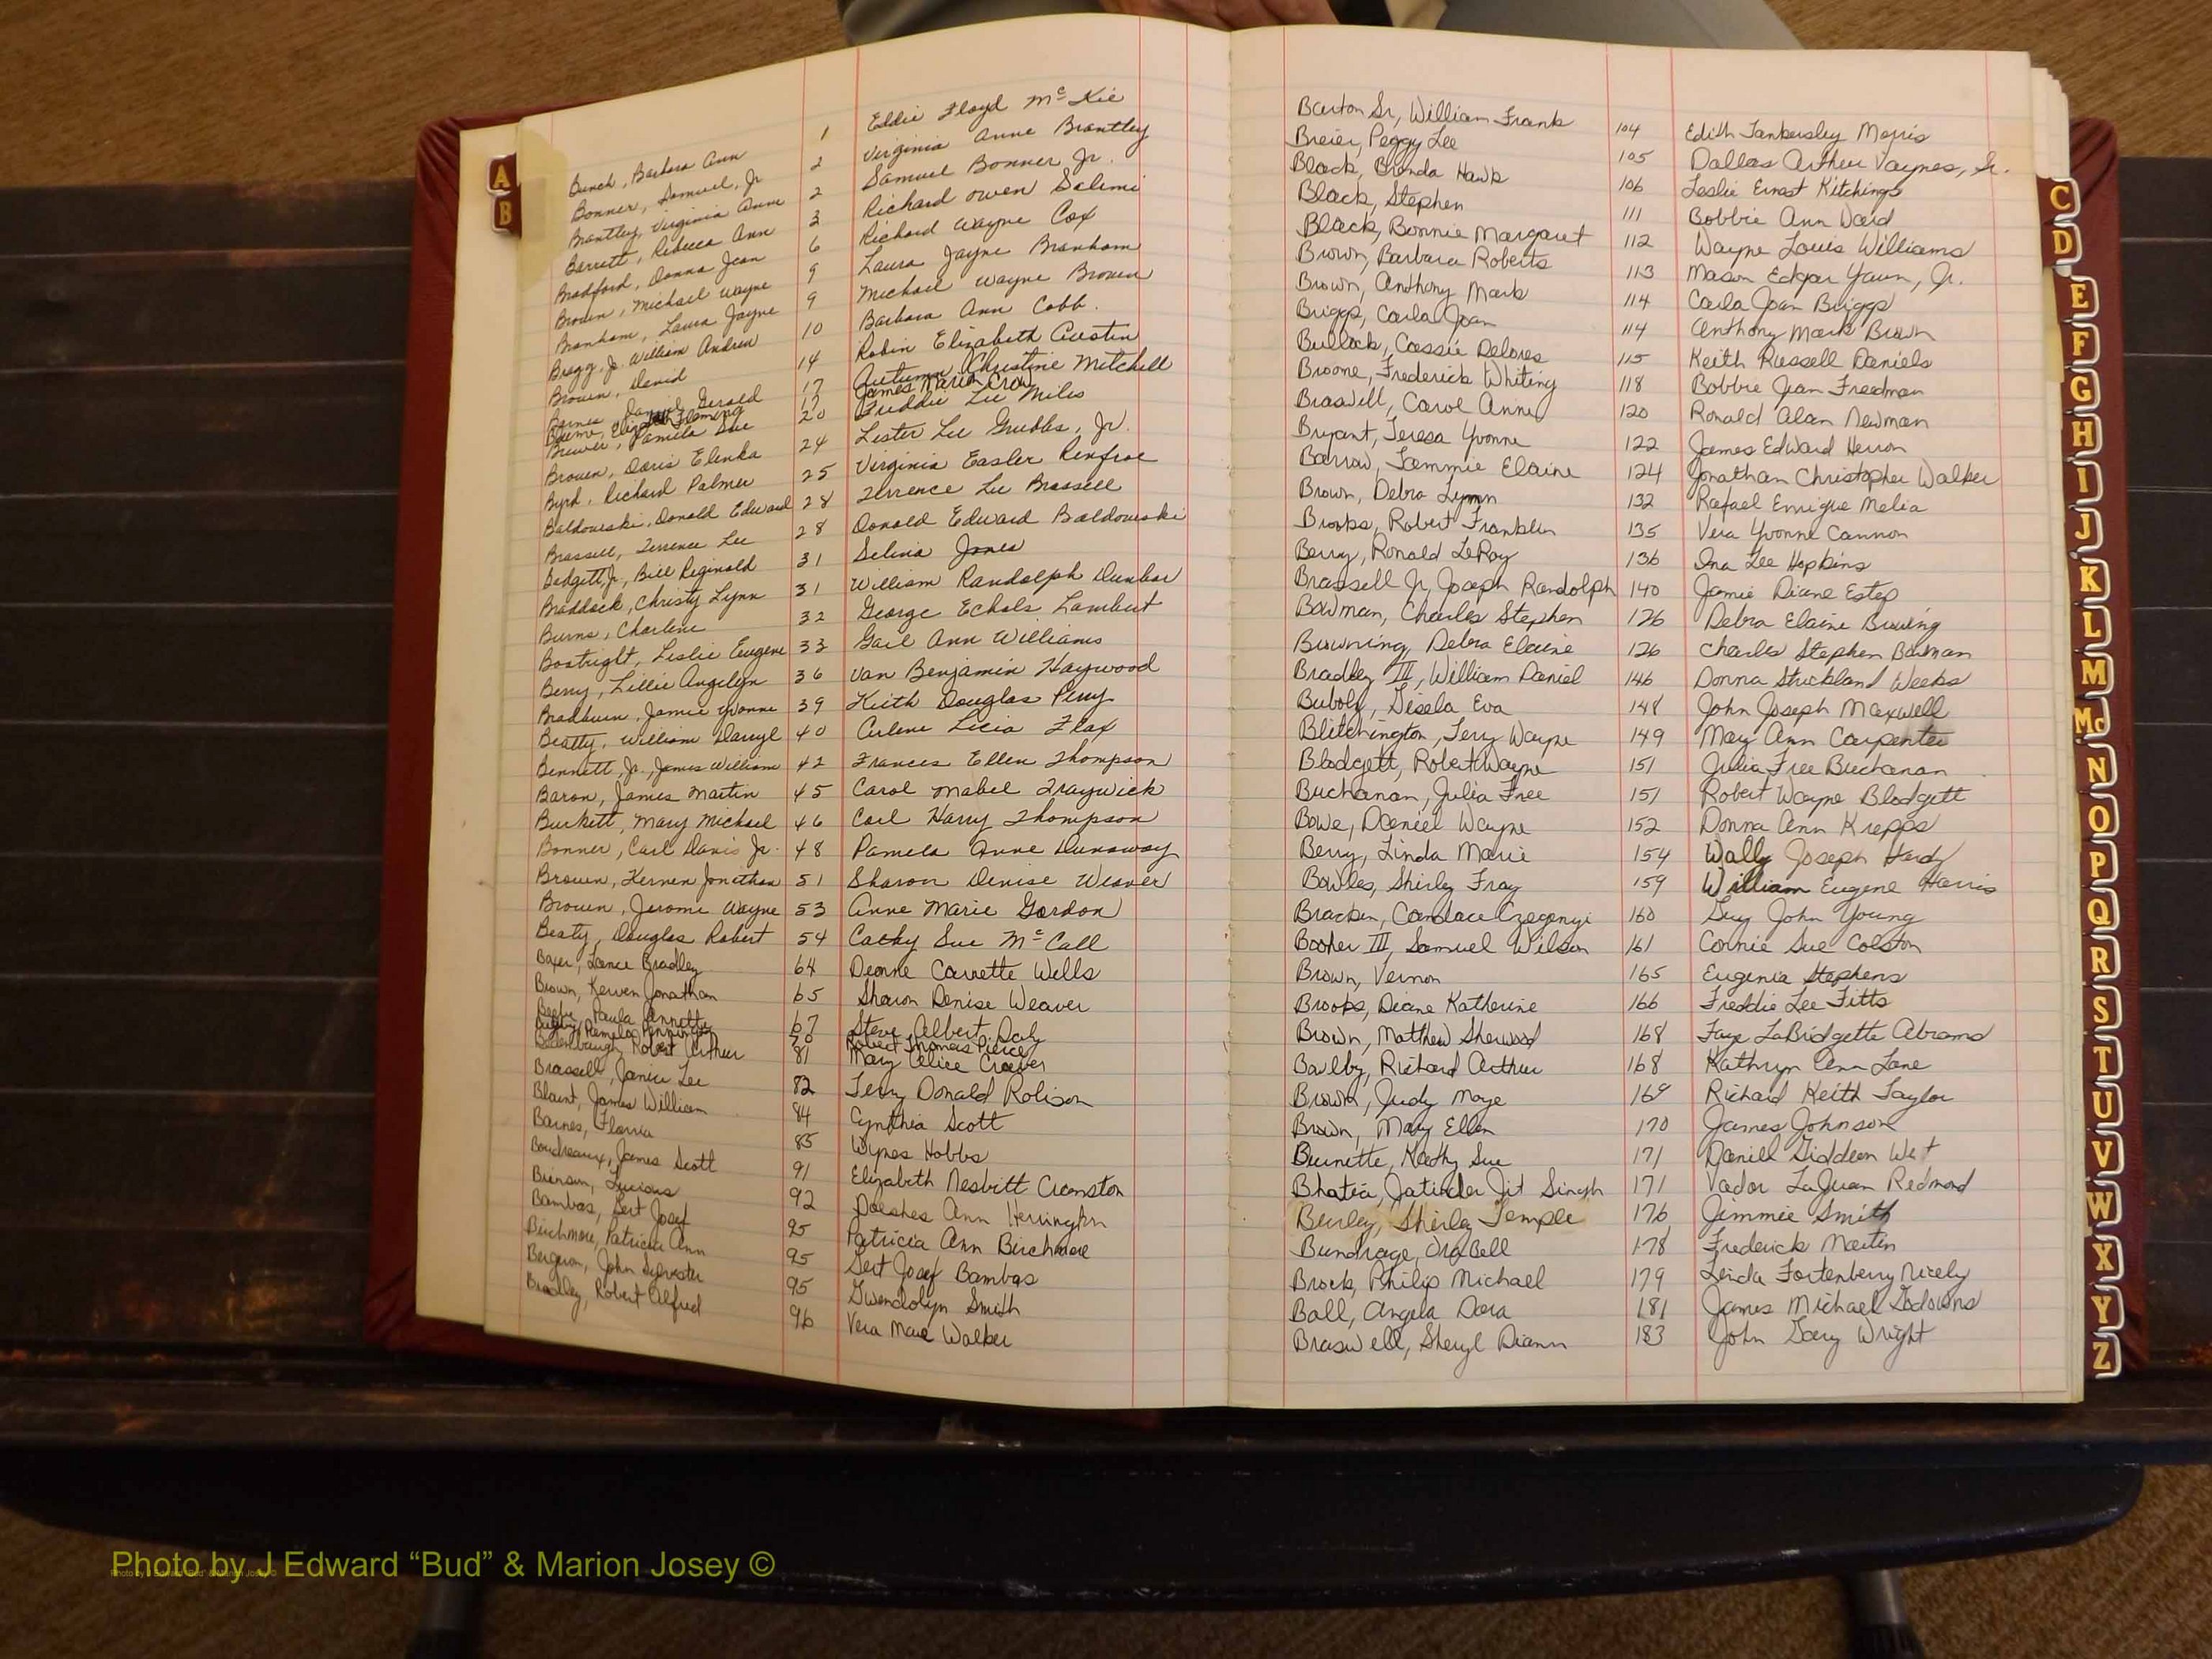 A
B
Bunch, Barbara Ann 1 Eddie Floyd McKie
Bonner, Samuel, Jr 2 Virginia Anne Brantley
Brantley, Virginia Anne 2 Samuel Bonner Jr.
Barrett, Rebecca Ann 3 Richard Owen Salemi
Bradford, Donna Jean 6 Richard Wayne Cox
Brown, Michael Wayne 9 Laura Jayne Branham
Branham, Laura Jayne 9 Michael Wayne Brown
Bragg, Jr. William Andrew 10 Barbara Ann Cobb.
Brown, David 14 Robin Elizabeth Austin
Gerald 17 Autumn Christine Mitchell
Fleming 17 James Marion Crow
Brewer, Pamela Sue 20 Freddie Lee Miles
Brown, Doris Elenka 24 Lester Lee Grubbs, Jr.
Byrd, Richard Palmer 25 Virginia Easler Renfroe
Baldowski, Donald Edward 28 Terrence Lee Brassell
Brassell, Terrence Lee 28 Donald Edward Baldowski
Badgett, Jr, Bill Reginald 31 Selina Jones
Braddock, Christy Lynn 31 William Randolph Dunbar
Burns, Charlene 32 George Echols Lambert
Boatright, Leslie Eugene 33 Gail Ann Williams
Berry, Lillie Angelyn 36 Van Benjamin Haywood
Bradburn, Jamie Yvonne 39 Keith Douglas Perry
Beatty, William Darryl 40 Arlene Licia Flax
Bennett, Jr., James William 42 Frances Ellen Thompson
Baron, James Martin 45 Carol Mabel Traywick
Burkett, Mary Michael 46 Carl Harry Thompson
Bonner, Carl Davis Jr. 48 Pamela Anne Dunaway
Brown, Kerven Jonathan 51 Sharon Denise Weaver
Brown, Jerome Wayne 53 Anne Marie Gordon
Beaty, Douglas Robert 54 Cathy Sue McCall
Boxer, Lance Bradley 64 Deanne Carnette Wells
Brown, Kerven Jonathan 65 Sharon Denise Weaver
Beebe, Paula Annette 67 Steve Albert Daly
Pamela Pennington 70 Robert Thomas Pierce
Robert Arthur 81 Mary Alice Craver
Brassell, Janice Lee 82 Terry Donald Rolison
Blount, James William 84 Cynthia Scott
Barnes, Florria 85 Wynes Hobbs
Boudreaux, James Scott 91 Elizabeth Nesbitt Cranston
Brinson, Lucious 92 Doeshes Ann Herrington
Bambas, Gert Josef 95 Patricia Ann Birchmore
Birchmore, Patricia Ann 95 Gert Josef Bambas
Bergeron, John Sylvester 95 Gwendolyn Smith
Bradley, Robert Alfred 96 Vera Mae Walker
Barton Sr, William Frank 104 Edith Tankersley Morris
Breier, Peggy Lee 105 Dallas Arthur Vaynes, Sr.
Black, Brenda Hawk 106 Leslie Ernest Kitchings
Black, Stephen 111 Bobbie Ann Ward
Black, Bonnie Margaret 112 Wayne Louis Williams
Brown, Barbara Roberts 113 Mason Edgar Yawn, Jr.
Brown, Anthony Mark 114 Carla Joan Briggs
Briggs, Carla Joan 114 Anthony Mark Brown
Bullock, Cassie Delores 115 Keith Russell Daniels
Broome, Frederick Whiting 118 Bobbie Jean Freedman
Braswell, Carol Anne 120 Ronald Alan Newman
Bryant, Teresa Yvonne 122 James Edward Herron
Barrow, Tammie Elaine 124 Jonathan Christopher Walker
Brown, Debra Lynn 132 Rafael Enrique Melia
Brooks, Robert Franklin 135 Vera Yvonne Cannon
Berry, Ronald LeRoy 136 Ina Lee Hopkins
Brassell Jr, Joseph Randolph 140 Jamie Diane Estep
Bowman, Charles Stephen 126 Debra Elaine Browning
Browning, Debra Elaine 126 Charles Stephen Bowman
Bradley II, William Daniel 146 Donna Strickland Weeks
Bubolz, Gisela Eva 148 John Joseph Maxwell
Blitchington, Terry Wayne 149 Mary Ann Carpenter
Blodgett, Robert Wayne 151 Julia Free Buchanan
Buchanan, Julia Free 151 Robert Wayne Blodgett
Bowe, Daniel Wayne 152 Donna Ann Krepps
Berry, Linda Marie 154 Wally Joseph Hardy
Bowles, Shirley Fray 159 William Eugene Harris
Bracken, Candace Czegenyi 160 Guy John Young
Booher III, Samuel Wilson 161 Connie Sue Colston
Brown, Vernon 165 Eugenia Stephens
Brooks, Deane Katherine 166 Freddie Lee Fitts
Brown, Matthew Sherwood 168 Faye LaBridgette Abrams
Baulby, Richard Arthur 168 Kathryn Ann Lane
Brown, Judy Maye 169 Richard Keith Taylor
Brown, Mary Ellen 170 James Johnson
Burnette, Kathy Sue 171 Daniel Giddeon West
Bhatia, Jatinder Jit Singh 171 Vador LaJuan Redmond
Burley, Shirley Temple 176 Jimmie Smith
Bundrage, Ora Bell 178 Frederick Martin
Brock, Philip Michael 179 Linda Fortenberry Nicely
Ball, Angela Dora 181 James Michael Godowns
Braswell, Sheryl Diann 183 John Gary Wright
C
D
E
F
G
H
I
J
K
L
M
Mc
N
O
P
Q
R
S
T
U
V
W
X
Y
Z
Photo by J Edward “Bud” & Marion Josey ©
Photo by J Edward "Bud" & Marion Josey ©